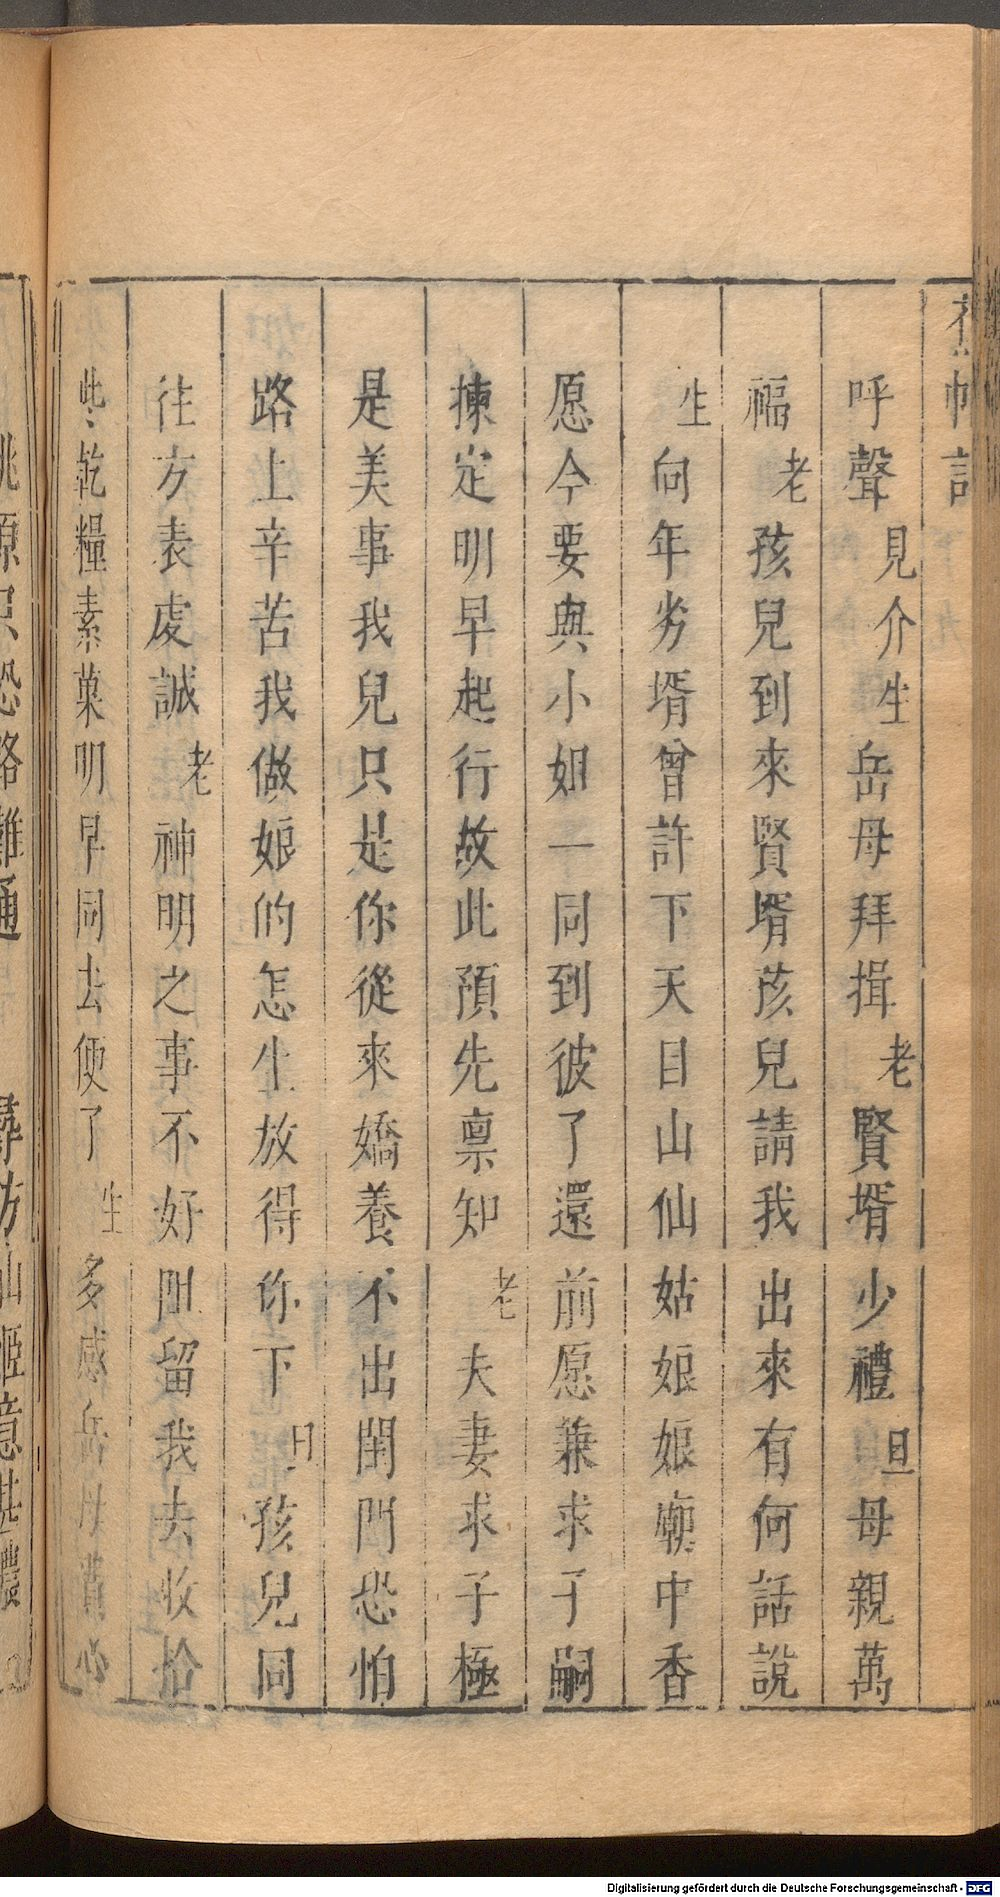 蕉帕記
呼聲見介生岳母拜揖老賢壻少禮旦母親萬
福老孩兒到來賢壻孩兒請我出來有何話說
生向年劣壻曾許下天目山仙姑娘娘廟中香
愿今要與小姐一同到彼了還前愿兼求子嗣
揀定明早起行故此預先禀知老夫妻求子極
是美事我兒只是你從來嬌養不出閨門恐怕
路上辛苦我做娘的怎生放得你下旦孩兒同
往方表虔誠老神明之事不好阻留我去收拾
此乾糧素菓明早同去便了生多感岳母費心
桃源只恐路難通
尋訪仙姬意甚濃
Digitalisierung gefördert durch die Deutsche Forschungsgemeinschaft - DFG